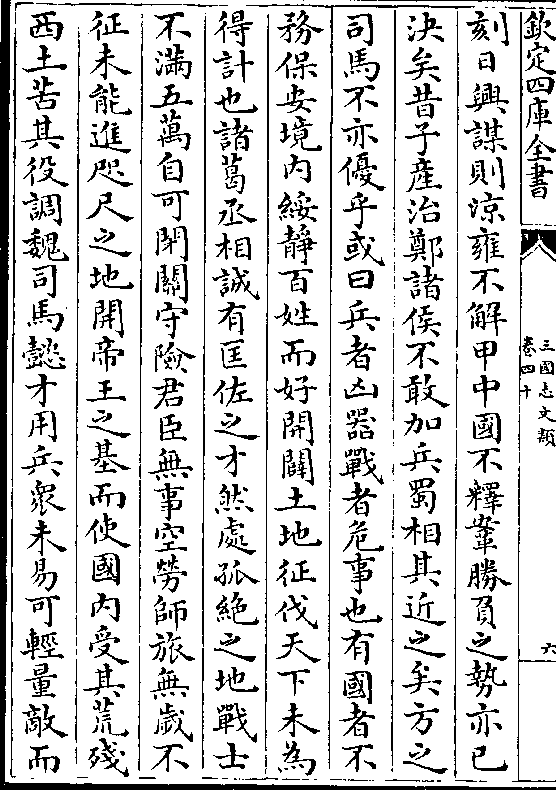 欽定四庫全書
三國志文類
卷四十
六
刻日興謀則凉雍不解甲中國不釋鞌勝負之勢亦已
決矣昔子産治鄭諸侯不敢加兵蜀相其近之矣方之
司馬不亦優乎或曰兵者凶器戰者危事也有國者不
務保安境内綏靜百姓而好開闢土地征伐天下未為
得計也諸葛丞相誠有匡佐之才然處孤絶之地戰士
不滿五萬自可閉關守險君臣無事空勞師旅無歲不
征未能進咫尺之地開帝王之基而使國内受其荒殘
西土苦其役調魏司馬懿才用兵衆未易可輕量敵而